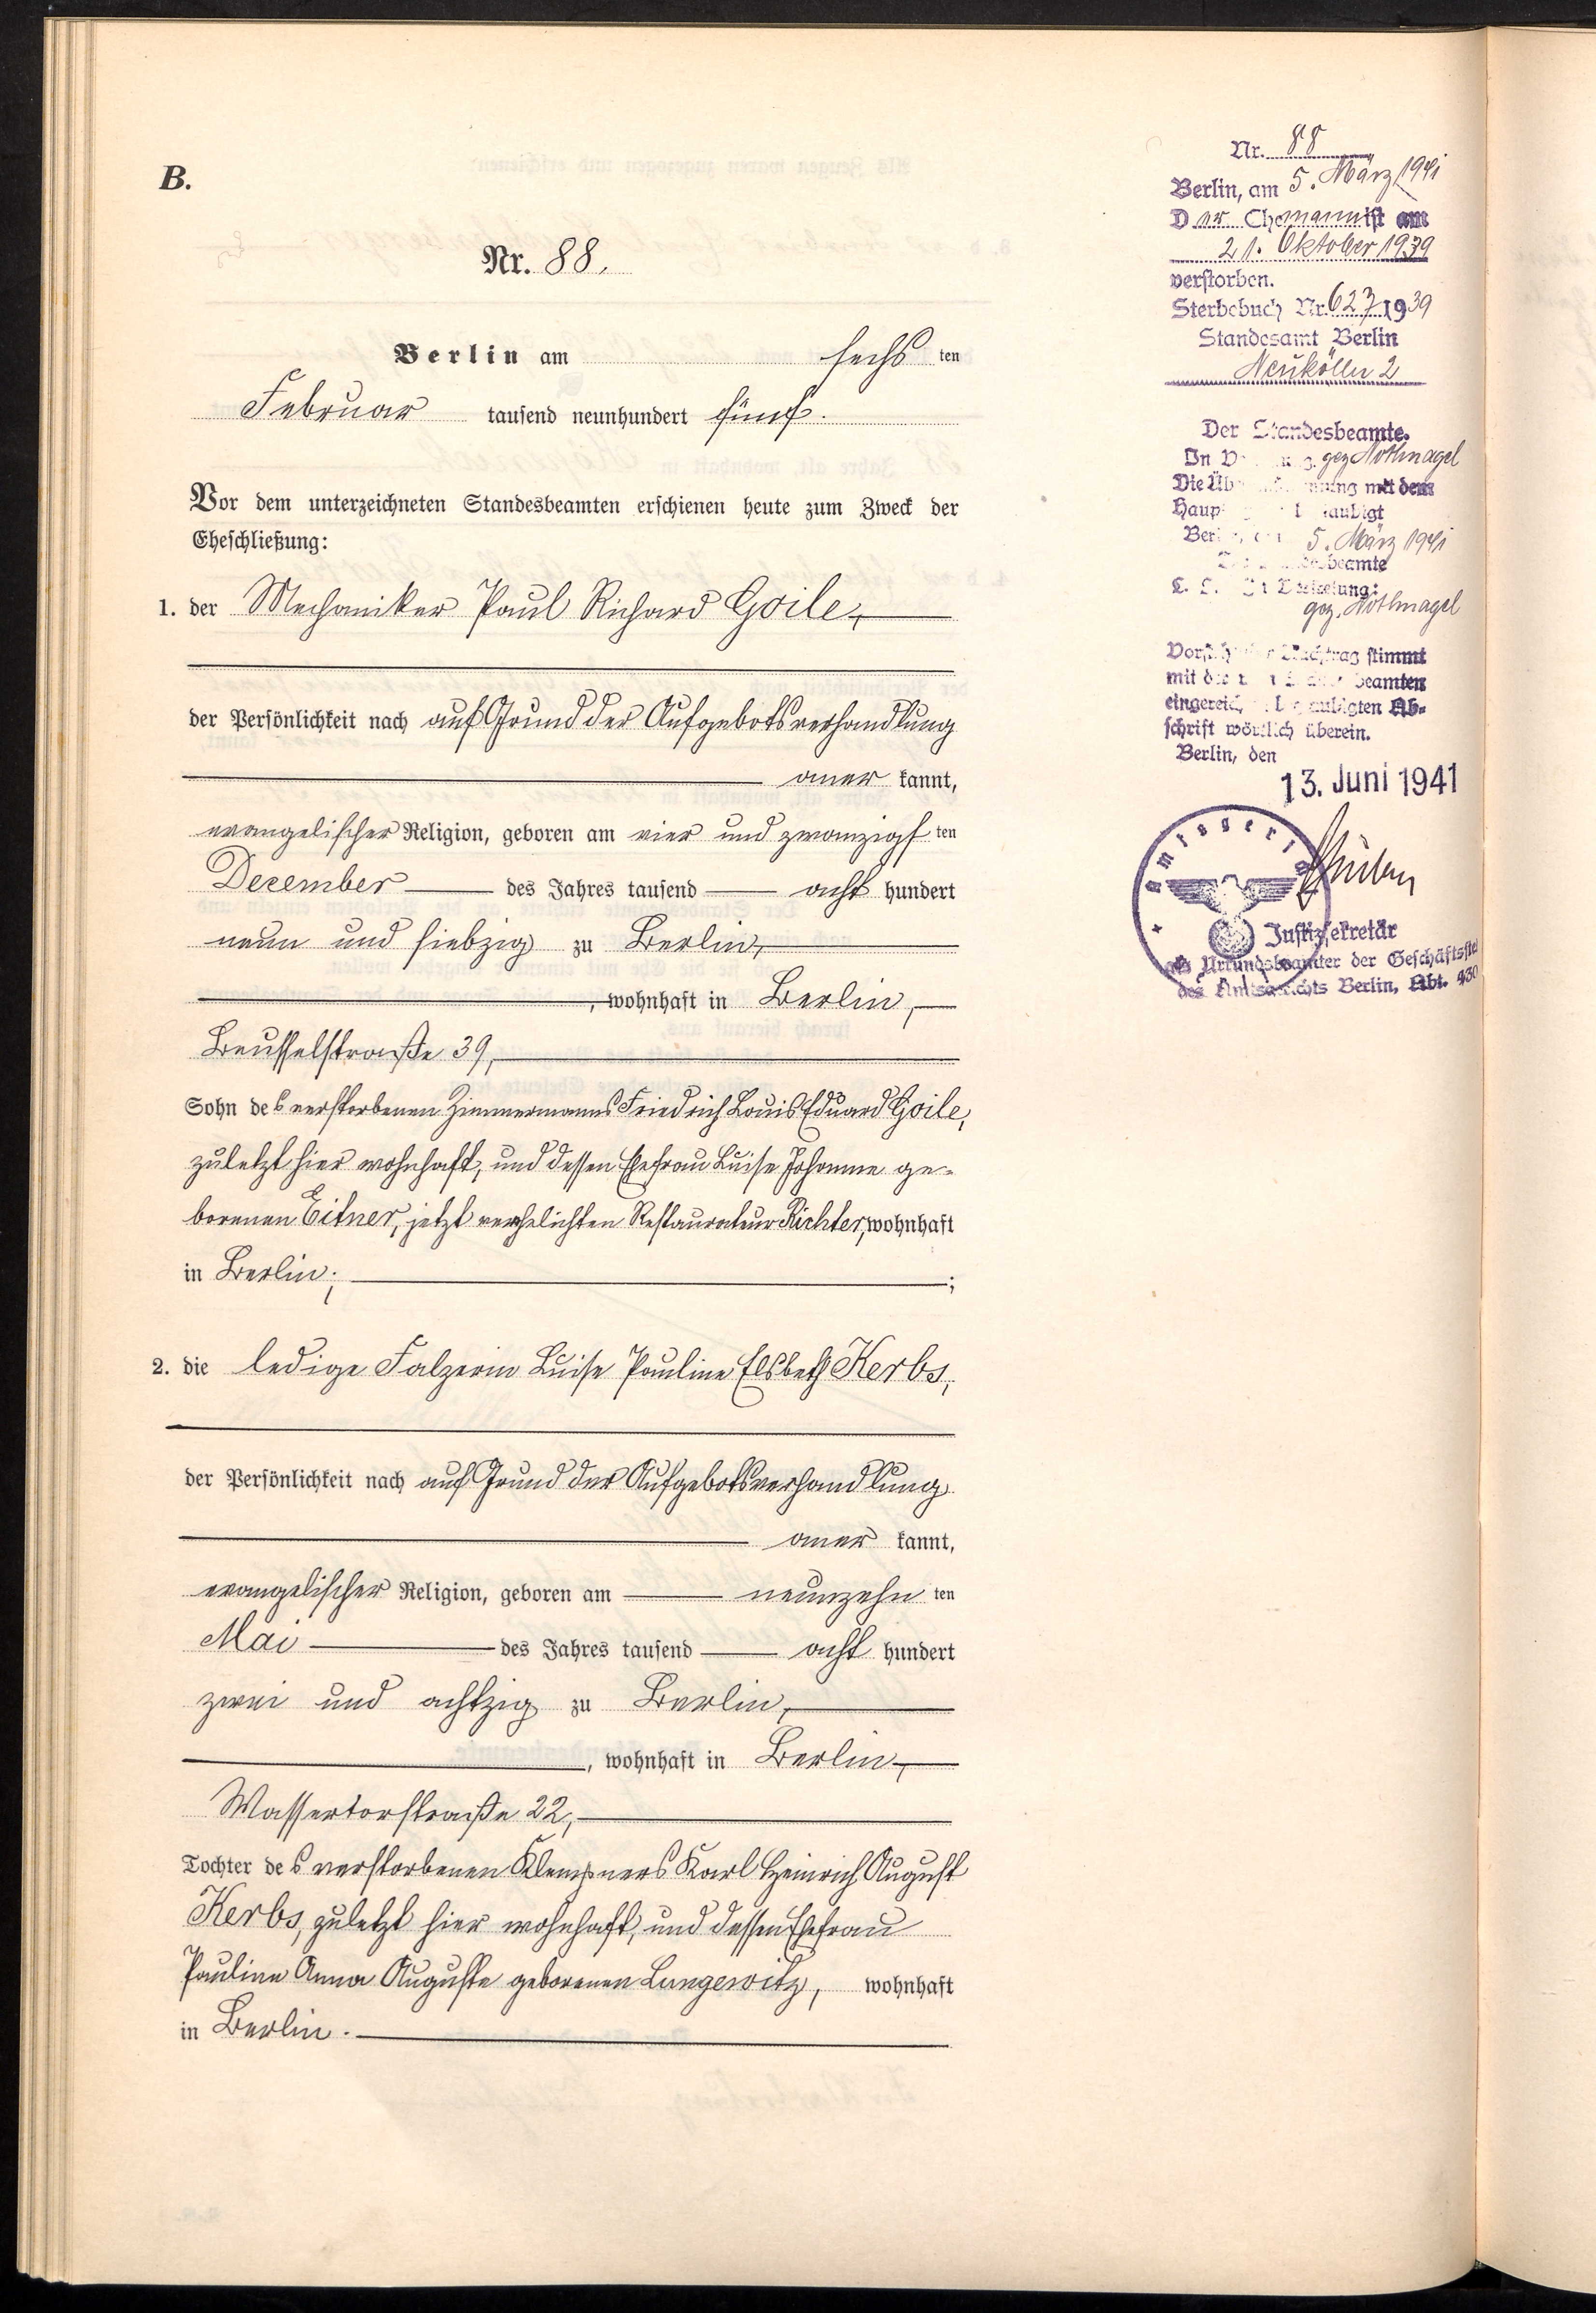 B.
Nr. 88.
Berlin am sechs ten
Februar tausend neunhundert fünf.
Vor dem unterzeichneten Standesbeamten erschienen heute zum Zweck der
Eheschließung:
1. der Mechaniker Paul Richard Goile,
der Persönlichkeit nach auf Grund der Aufgebotsverhandlung
aner kannt,
evangelischer Religion, geboren am vier und zwanzigs ten
December des Jahres tausend acht hundert
neun und siebzig zu Berlin,
, wohnhaft in Berlin,
Beusselstraße 39,
Sohn des verstorbenen Zimmermanns Friedrich Louis Eduard Goile,
zuletzt hier wohnhaft, und dessen Ehefrau Luise Johanne ge-
borenen Eitner, jetzt verehelichten Restaurateur Richter, wohnhaft
in Berlin; ;
2. die ledige Falzerin Luise Pauline Elsbeth Kerbs,
der Persönlichkeit nach auf Grund der Aufgebotsverhandlung
aner kannt,
evangelischer Religion, geboren am neunzehn ten
Mai des Jahres tausend acht hundert
zwei und achtzig zu Berlin,
, wohnhaft in Berlin,
Wassertorstraße 22,
Tochter des verstorbenen Klempners Karl Heinrich August
Kerbs, zuletzt hier wohnhaft, und dessen Ehefrau
Pauline Anna Auguste geborenen Langewitz, wohnhaft
in Berlin.
Nr. 88
Berlin, am 5. März 1941
Der Ehemann ist am
21. Oktober 1939
verstorben.
Sterbebuch Nr. 627 1939
Standesamt Berlin
Neukölln 2
Der Standesbeamte.
In gez Nothnagel
Die mit dem
Berlin, 5. März 1941
gez. Nothnagel
stimmt
mit
Ab-
schrift wörtlich überein.
Berlin, den
13. Juni 1941
Amtsgericht
Justizsekretär
als Urkundsbeamter der Geschäftsstel
des Amtsgerichts Berlin, Abt.